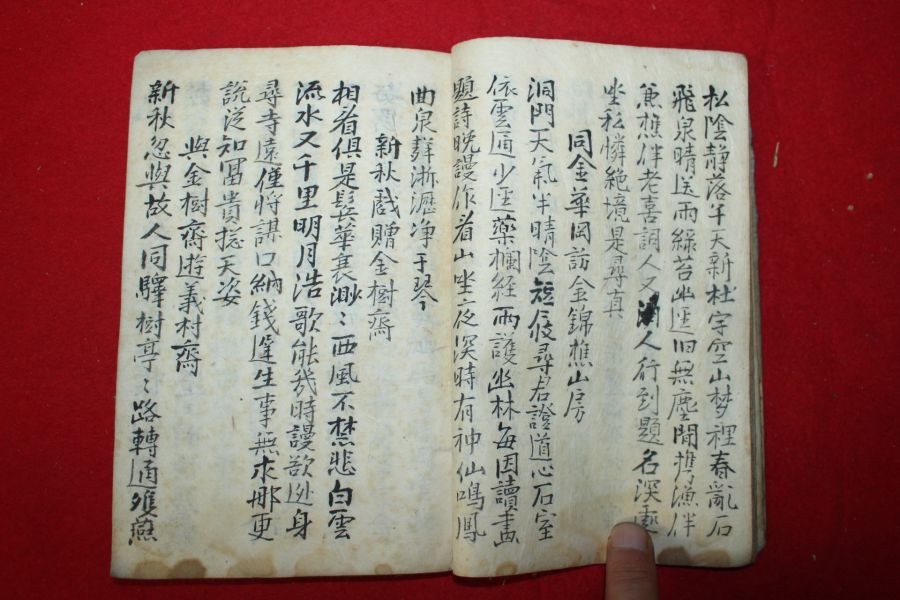 松陰靜落午天新杜宇空山梦裡春亂石
飛泉晴送雨綠苔幽逕旧無塵閒携漁伴
兼樵伴老喜詞人又酒人行到題名深處
坐私憐絶境是尋真
同金華岡訪金錦樵山房
洞門天氣半晴陰短屐尋君證道心石室
依雲通少逕藥欄經雨護幽林每因讀畵
題詩晚謾作看山坐夜深時有神仙鳴鳳
曲泉聲淅瀝净于琴
新秋戲贈金樹齋
相看俱是鬂華衰渺〻西風不禁悲白雲
流水又千里明月浩歌能幾時謾欲逃身
尋寺遠僅將謀口納錢遲生事無求那更
說泛知冨貴揔天姿
與金樹齋遊義村齋
新秋忽與故人同驛樹亭〻路轉通雙燕